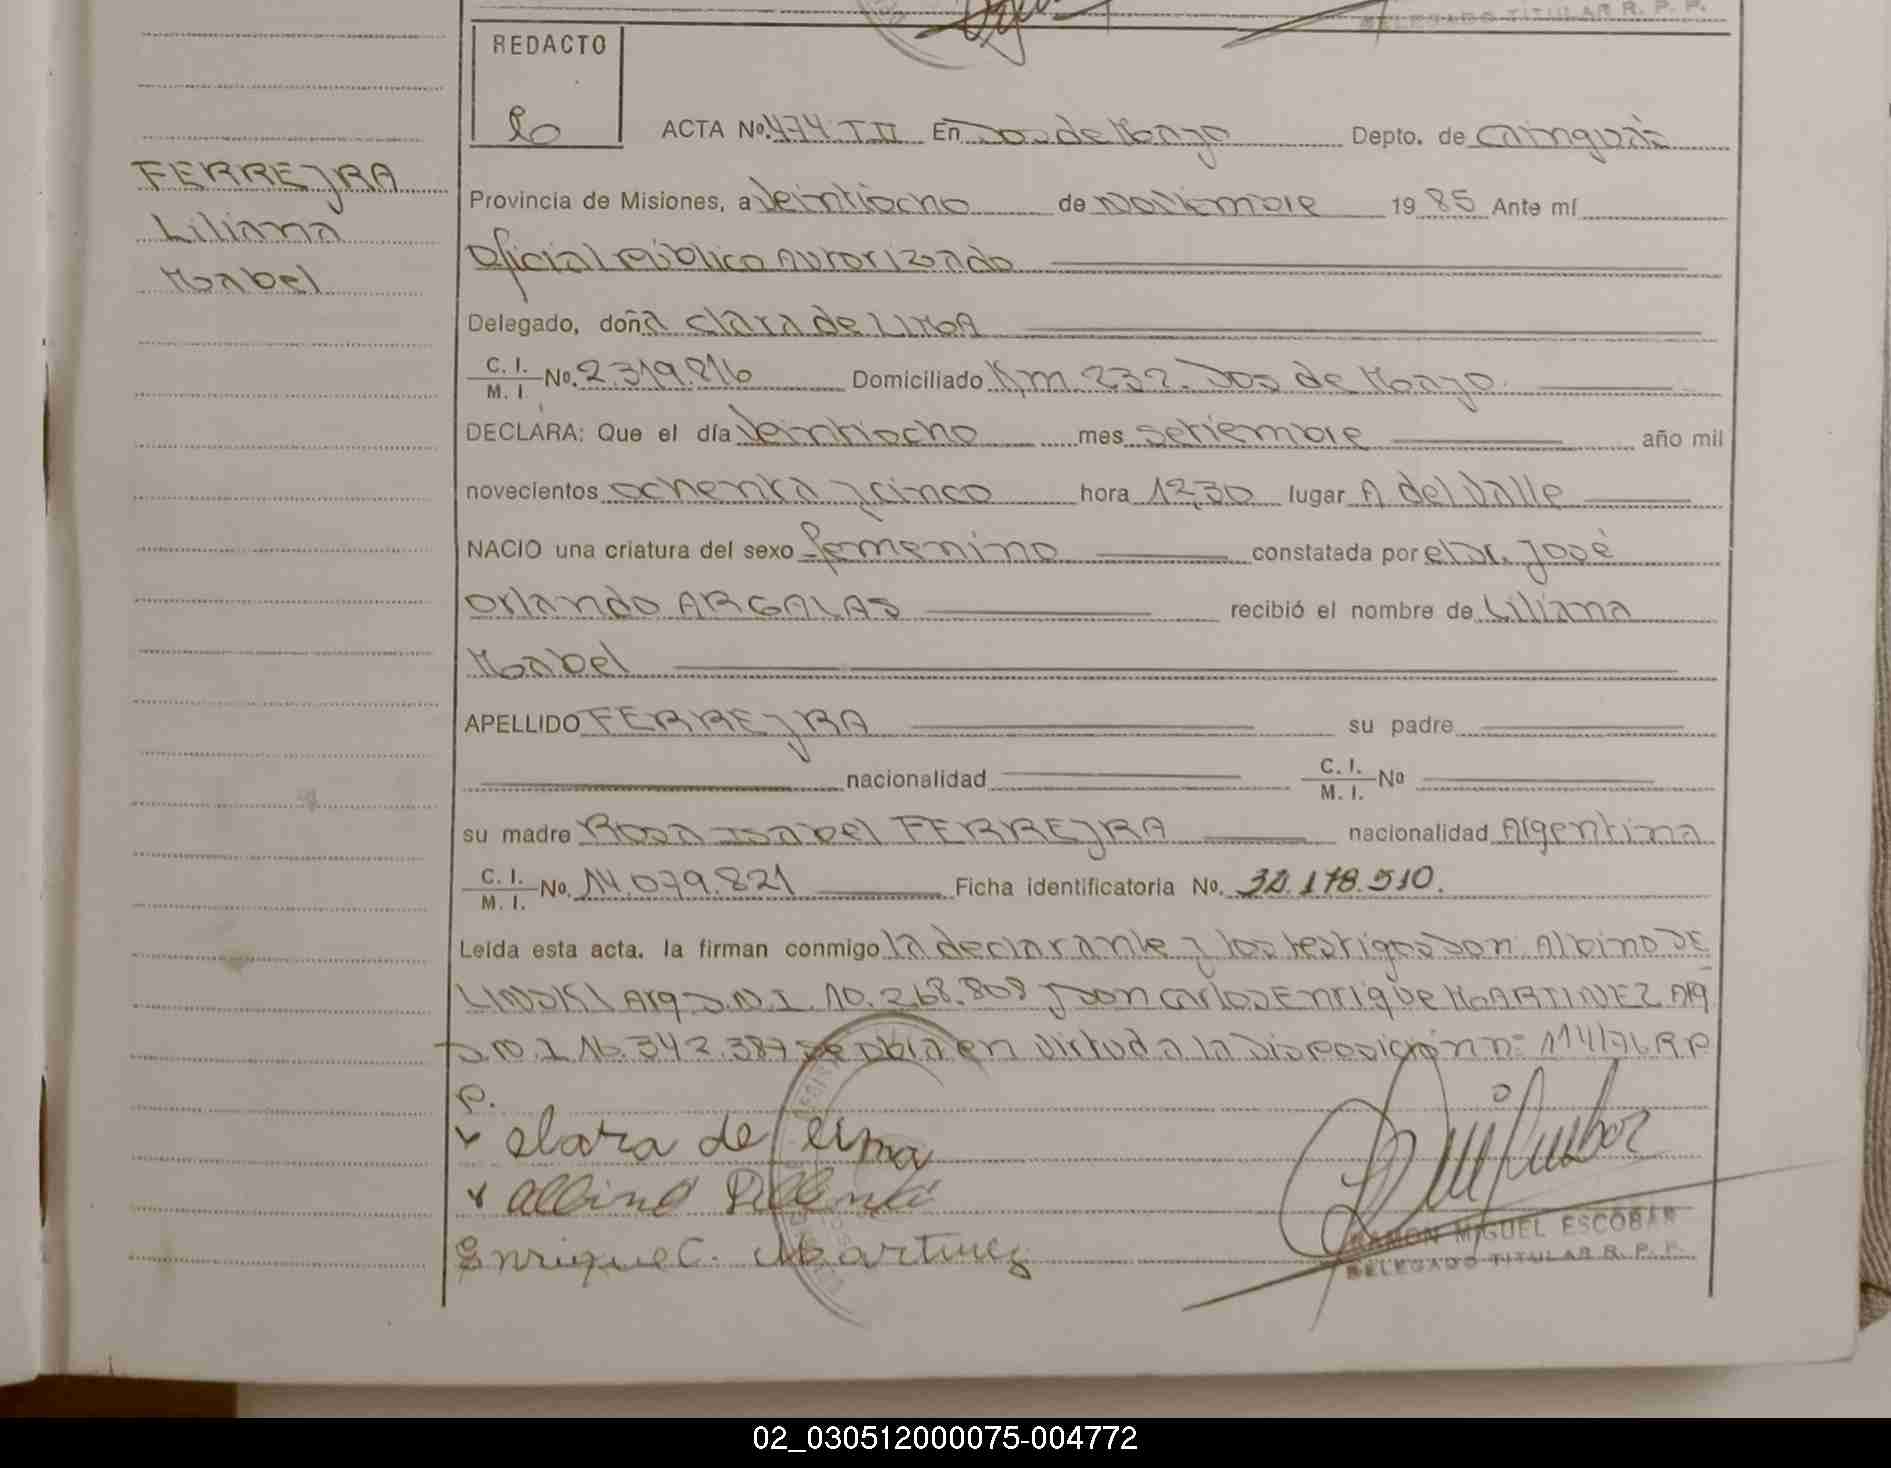 DELEGADO TITULAR R. P. P.
REDACTO
ACTA No. 474 T II En Dos de Mayo Depto. de Cainguás
FERREYRA
Liliana
Mabel
Provincia de Misiones, a Veintiocho de Noviembre 1985 Ante mí
Oficial público Autorizado
Delegado, doña Clara de LIMA
C. I. M. I. No. 2.319.816 Domiciliado Km. 232. Dos de Mayo.
DECLARA: Que el día Veintiocho mes setiembre año mil
novecientos ochenta y cinco hora 12,30 lugar A del Valle
NACIO una criatura del sexo femenino constatada por el Dr. José
Orlando ARGALAS recibió el nombre de Liliana
Mabel
APELLIDO FERREYRA su padre
nacionalidad C. I. M. I. No
su madre Rosa Isabel FERREYRA nacionalidad Argentina
C. I. M. I. No. 14.079.821 Ficha identificatoria No. 32.178.510.
Leída esta acta. la firman conmigo la declarante y los testigos Don: Albino DE
LINSKI Arg D.N.I. 10.268.808 y Don Carlos Enrique MARTINEZ Arg
D.N.I 16.342.387 se obra en virtud a la Disposición nº 114/76 R.P
P.
Clara de Lima
Albino
Enrique C. Martinez
RAMON MIGUEL ESCOBAR
DELEGADO TITULAR R. P. P.
02_030512000075-004772